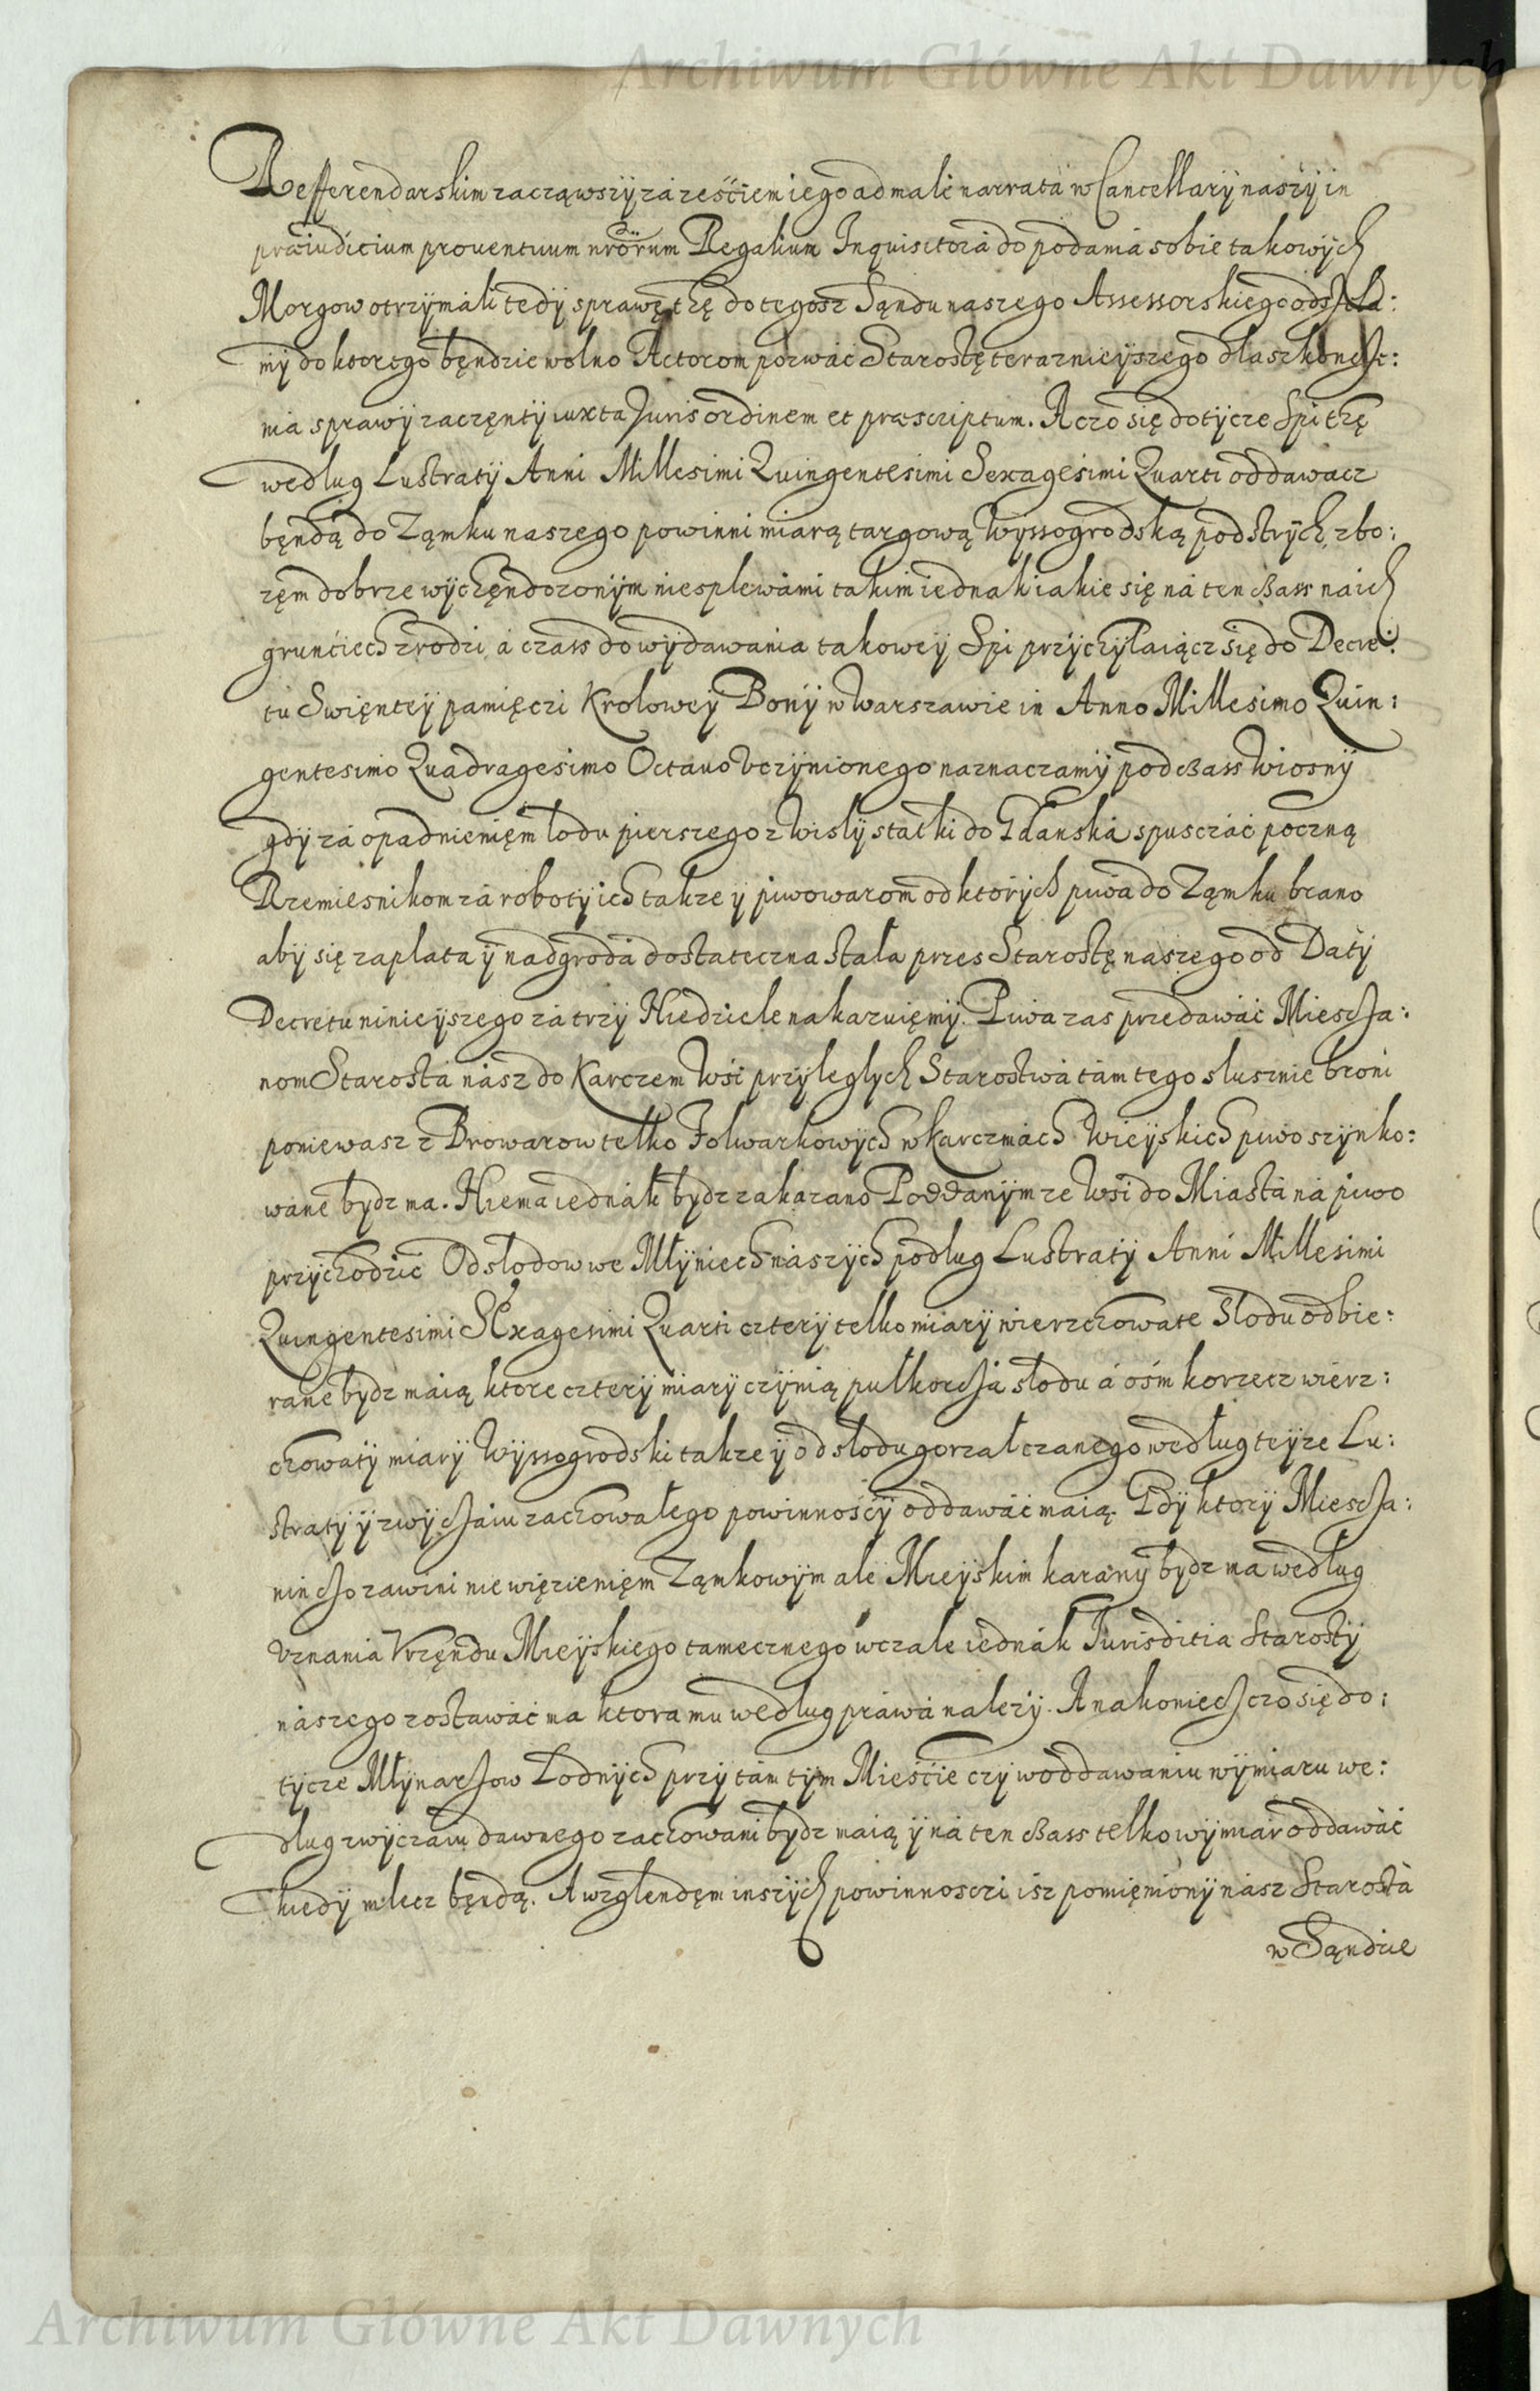 Archiwum Główne Akt Dawnych
Refferendarskim zacząwszÿ zá ześciem iego ad male narratá w Cancellarÿ naszÿ in
præiudicium prouentuum nrōrum Regalium Inquisitorá do podania sobie takowÿch
Morgow otrzÿmáli tedÿ sprawę tzę do tegosz Sąndu naszego Assessorskiego odsÿła:
mÿ do ktorego będzie wolno Actorom pozwáć Starostę teraznieÿszego dla szkoncze:
nia sprawÿ zaczęntÿ iuxta Juris ordinem et præscriptum. A czo się dotÿcze Spi tzę
według Lustratÿ Anni Millesimi Quingentesimi Sexagesimi Quarti oddawacz
będą do Ząmku naszego powinni miarą targową Wÿssogrodską pod strÿch, zbo:
zęm dobrze wÿchędozonÿm nie splewámi takim iednak iakie się ná ten czass na ich
grunćiech zrodzi, á czass do wÿdawania takoweÿ Spi przÿchÿlaiącz się do Decre:
tu Swiętey pamięczi Kroloweÿ Bonÿ w Warszawie in Anno Millesimo Quin:
gentesimo Quadragesimo Octauo vczÿnionego naznaczamÿ pod czass Wiosnÿ
gdÿ zá opadnienięm lodu pierszego z Wislÿ statki do Gdanská spusczáć poczną
Rzemiesnikom zá robotÿ ich takze ÿ piwowarom od ktorÿch piwá do Ząmku brano
abÿ się zaplata ÿ nadgrodá dostateczna stała przes Starostę naszego od Datÿ
Decretu ninieÿszego zá trzÿ Niedziele nakazuięmÿ. Piwa zas przedawáć Miescza:
nom Starostá nász do Karczem Wśi przÿległych Starostwá tám tego slusznie broni
poniewasz z Browarow telko Folwarkowÿch w Karczmách Wieÿskich piwo szÿnko:
wane bÿdz ma. Nie ma iednák bÿdz zakazano Poddanÿm ze Wśi do Miastá ná piwo
przÿchodzić Od słodow we Młÿniech nászÿch podług Lustratÿ Anni Millesimi
Quingentesimi SExagesimi Quarti czterÿ telko miarÿ wierzchowate Słodu odbie:
rane bÿdz máią ktore czterÿ miarÿ czÿnią pułkorczá słodu á ośm korzecz wierz:
chowatÿ miarÿ Wÿssogrodski takze ÿ od słodu gorzałczanego według teÿze Lu:
stratÿ ÿ zwÿczáiu zachowałego powinnośćÿ oddawáć maią. Gdÿ ktorÿ Miescza:
nin czo zawini nie więzienięm Ząmkowÿm ale Mieÿskim karány bÿdz ma według
vznania Vrzęndu Mieÿskiego tamecznego wczale iednák Jurisditia Starostÿ
nászego zostawáć ma ktora mu według práwá nalezÿ. A nakoniecz czo się do:
tÿcze Młÿnarzow Łodnÿch przÿ tám tÿm Mieśćie czÿ w oddawaniu wÿmiaru we:
dług zwÿczaiu dawnego zachowani bÿdz maią ÿ ná ten czass telko wÿmiar oddawáć
kiedÿ mlecz będą. A wzglendęm inszÿch powinnosczi isz pomięnionÿ nász Starostá
w Sąndzie
Archiwum Główne Akt Dawnych